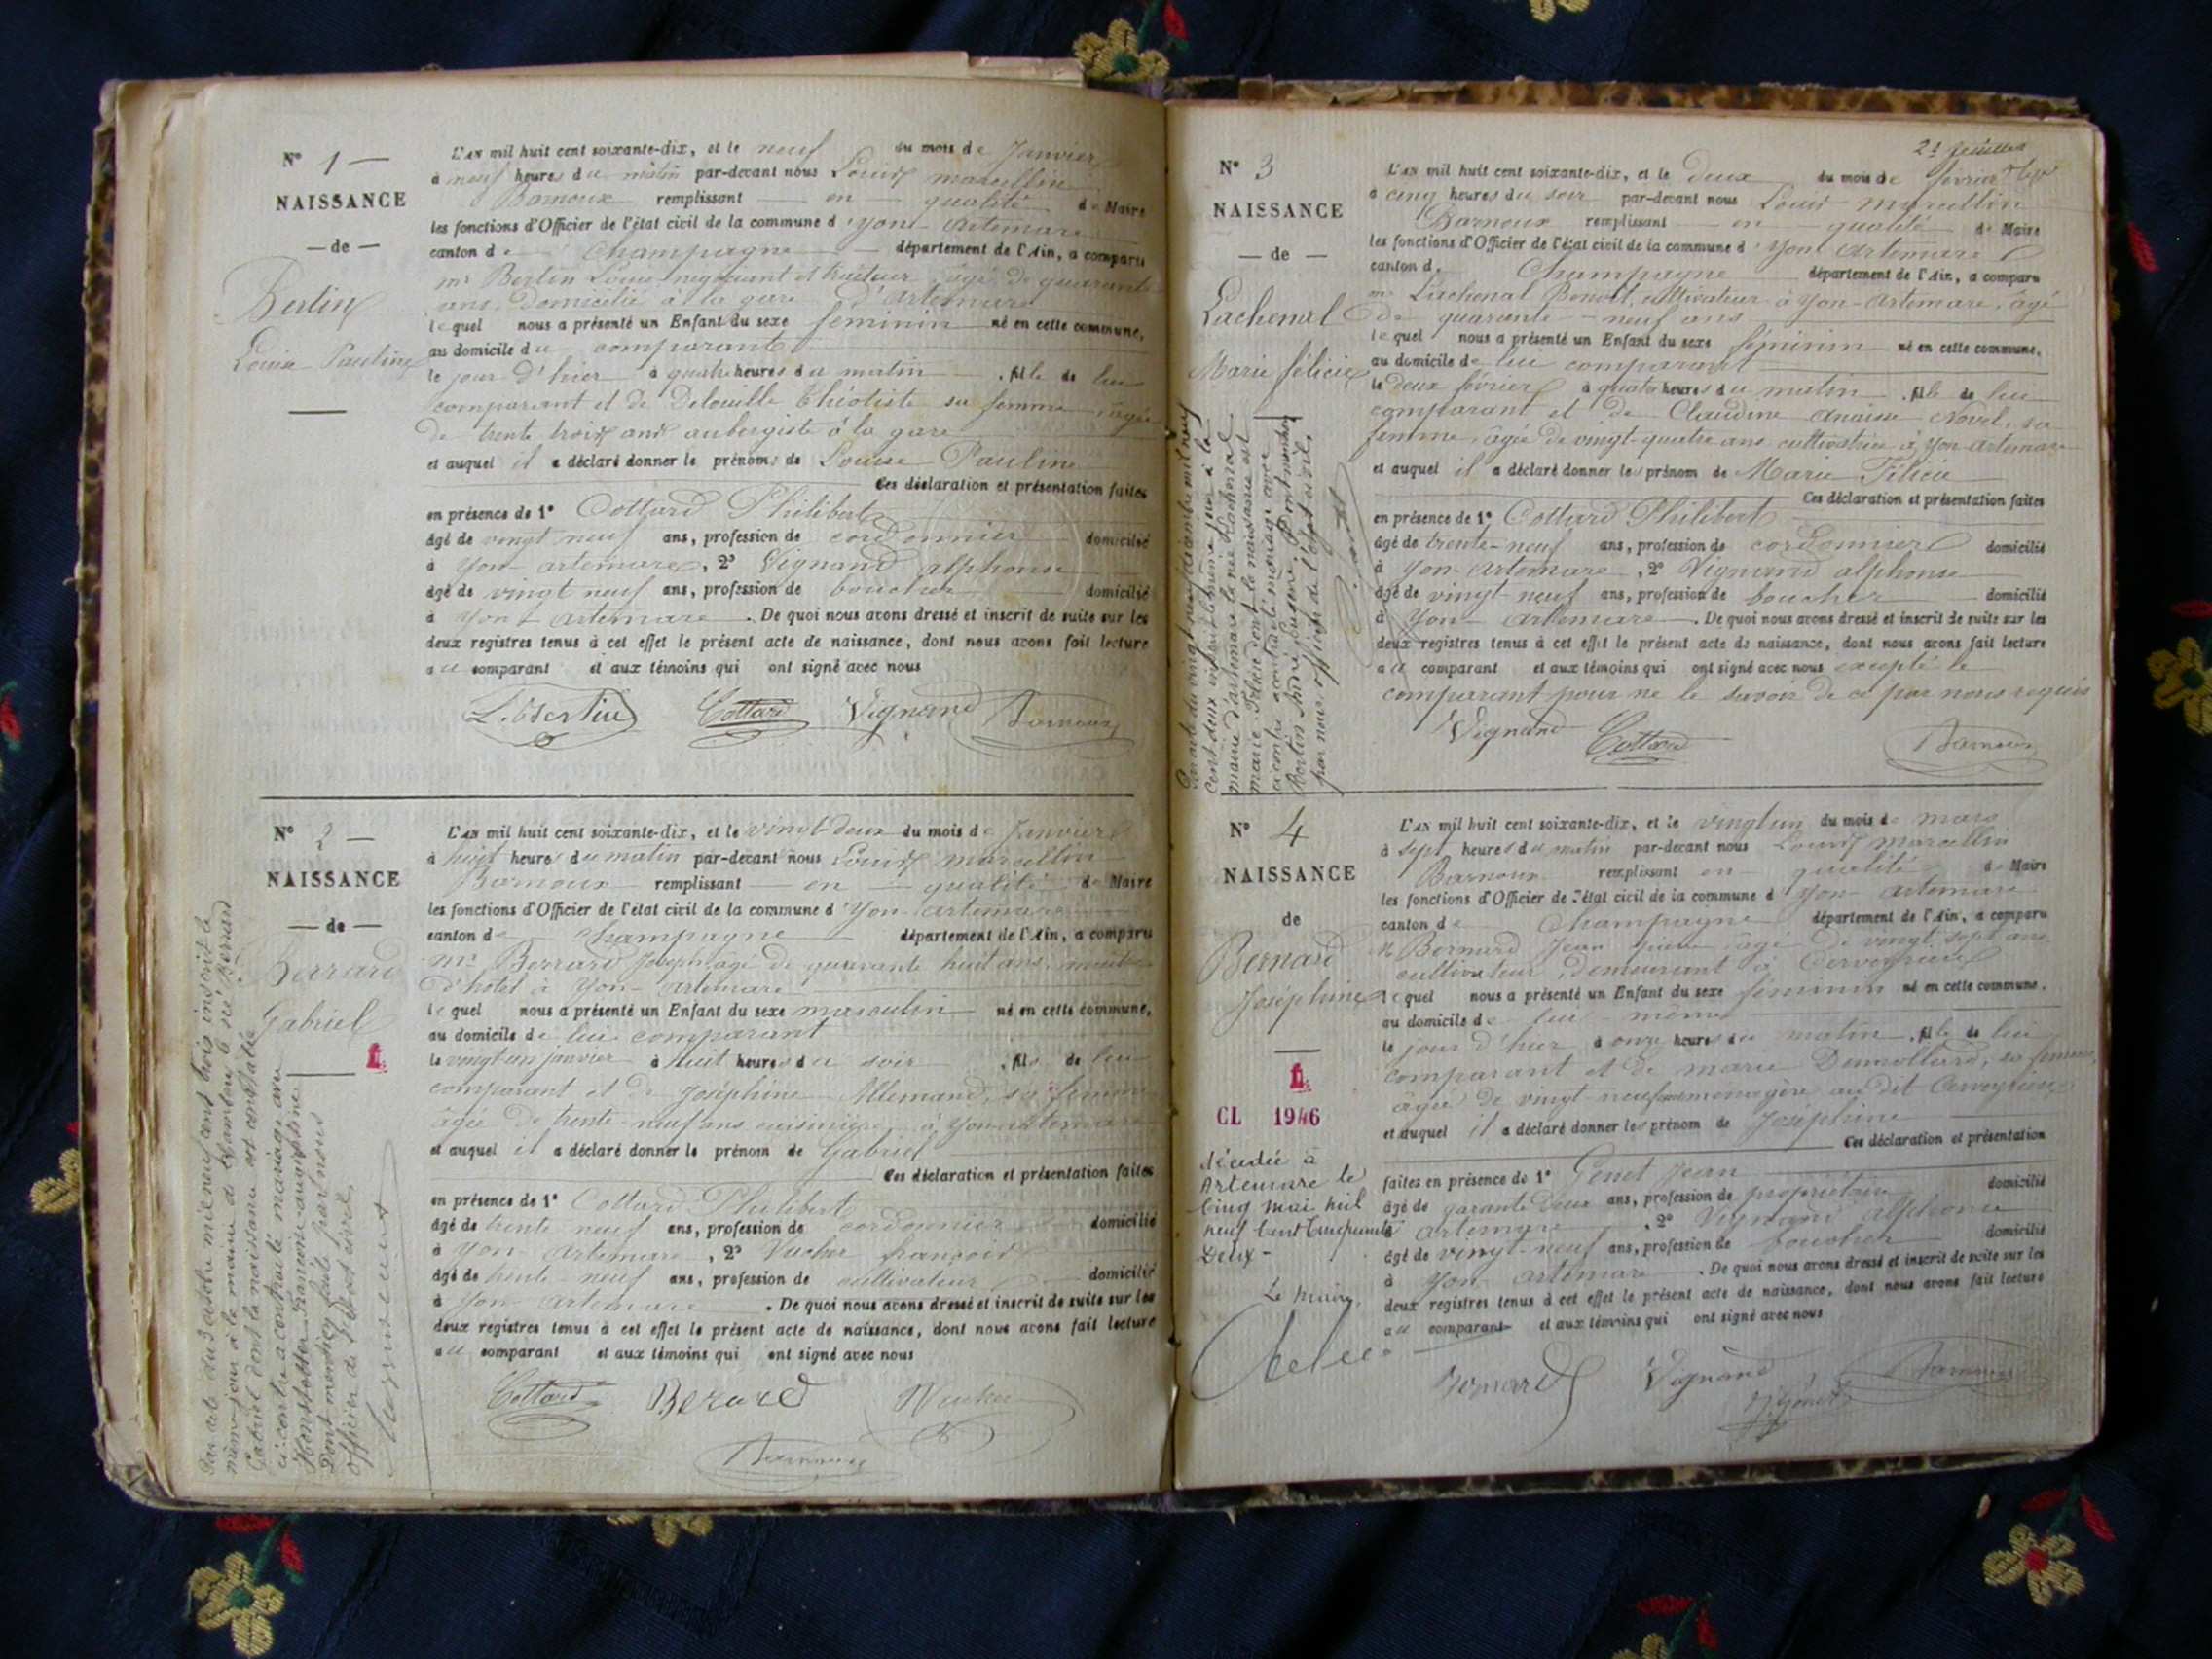 N° 1
NAISSANCE
— de —
Bertin
Louise Pauline
L'AN mil huit cent soixante-dix, et le neuf du mois de Janvier
à neuf heures du matin par-devant nous Louis marcellin
Barnoux remplissant en qualité de Maire
les fonctions d'Officier de l'état civil de la commune d'yon-artemare
canton de Champagne département de l'Ain, a comparu
mr Bertin Louis negociant et traiteur âgé de quarante
ans, domicilié à la gare d'artemare
lequel nous a présenté un Enfant du sexe feminin né en cette commune,
au domicile du comparant
le jour d'hier à quatre heures du matin , fille de lui
comparant et de Delouille sa femme âgée
de trente trois ans aubergiste à la gare
et auquel il a déclaré donner le prénoms de Louise Pauline
Ces déclaration et présentation faites
en présence de 1° Cottard Philibert
âgé de vingt neuf ans, profession de cordonnier domicilié
à yon artemare, 2° Vignand alphonse
âgé de vingt neuf ans, profession de boucher domicilié
à yon artemare. De quoi nous avons dressé et inscrit de suite sur les
deux registres tenus à cet effet le présent acte de naissance, dont nous avons fait lecture
au comparant et aux témoins qui ont signé avec nous
L. Bertin Cottard Vignand Barnoux
N° 2
NAISSANCE
— de —
Berrard
Gabriel
L'AN mil huit cent soixante-dix, et le vingt-deux du mois de Janvier
à huit heures du matin par-devant nous Louis marcellin
Barnoux remplissant en qualité de Maire
les fonctions d'Officier de l'état civil de la commune d'yon-artemare
canton de Champagne département de l'Ain, a comparu
mr Berrard Joseph âgé de quarante huit ans, maître
d'hotel à yon-artemare
lequel nous a présenté un Enfant du sexe masculin né en cette commune,
au domicile de lui comparant
le vingt un janvier à huit heures du soir , fils de lui
comparant et de Joséphine Allemand, sa femme
âgée de trente-neuf ans cuisinière à yon-artemare
et auquel il a déclaré donner le prénom de Gabriel
Ces déclaration et présentation faites
en présence de 1° Cottard Philibert
âgé de trente neuf ans, profession de cordonnier domicilié
à yon artemare, 2° Vucher françois
âgé de trente-neuf ans, profession de cultivateur domicilié
à yon artemare. De quoi nous avons dressé et inscrit de suite sur les
deux registres tenus à cet effet le présent acte de naissance, dont nous avons fait lecture
au comparant et aux témoins qui ont signé avec nous
Cottard Berard Vucher
Barnoux
Par acte du 3 octobre mil neuf cent trois inscrit le
même jour à la mairie de le né Berrard
Gabriel dont la naissance est constatée
ci-contre a contracté mariage avec
Dont mention faite par nous
officier de l'état civil,
2e feuillet
N° 3
NAISSANCE
— de —
Lachenal
Marie félicie
L'AN mil huit cent soixante-dix, et le deux du mois de fevrier
à cinq heures du soir par-devant nous Louis marcellin
Barnoux remplissant en qualité de Maire
les fonctions d'Officier de l'état civil de la commune d'yon artemare
canton de Champagne département de l'Ain, a comparu
mr Lachenal Benoit, cultivateur à yon-artemare, âgé
de quarante-neuf ans
lequel nous a présenté un Enfant du sexe féminin né en cette commune,
au domicile de lui comparant
le deux février à quatre heures du matin , fille de lui
comparant et de Claudine anaïse Novel, sa
femme, âgée de vingt-quatre ans cultivatrice à yon artemare
et auquel il a déclaré donner les prénom de Marie Félicie
Ces déclaration et présentation faites
en présence de 1° Cottard Philibert
âgé de trente-neuf ans, profession de cordonnier domicilié
à yon-artemare, 2° Vignand alphonse
âgé de vingt-neuf ans, profession de boucher domicilié
à yon-artemare. De quoi nous avons dressé et inscrit de suite sur les
deux registres tenus à cet effet le présent acte de naissance, dont nous avons fait lecture
au comparant et aux témoins qui ont signé avec nous excepté le
comparant pour ne le savoir de ce par nous requis
Vignand Cottard Barnoux
Par acte du vingt neuf mil neuf
cent deux à la
mairie d'artemare la née Lachenal
marie Félicie dont la naissance est
ci contre a contracté mariage avec
Dont mention
par nous officier de l'état civil,
N° 4
NAISSANCE
de
Bernard
Joséphine
L'AN mil huit cent soixante-dix, et le vingt un du mois de mars
à sept heures du matin par-devant nous Louis marcellin
Barnoux remplissant en qualité de Maire
les fonctions d'Officier de l'état civil de la commune d'yon-artemare
canton de Champagne département de l'Ain, a comparu
M Bernard Jean âgé de vingt sept ans
cultivateur, demeurant à Cerveyrieu
lequel nous a présenté un Enfant du sexe féminin né en cette commune,
au domicile de lui-même
le jour d'hier à onze heures du matin , fille de lui
comparant et de marie sa femme,
âgée de vingt-neuf ans menagère au dit Cerveyrieu
et auquel il a déclaré donner les prénom de Joséphine
Ces déclaration et présentation
faites en présence de 1° Genet Jean domicilié
âgé de quarante deux ans, profession de propriétaire
à artemare, 2° Vignand alphonse
âgé de vingt-neuf ans, profession de boucher domicilié
à yon-artemare. De quoi nous avons dressé et inscrit de suite sur les
deux registres tenus à cet effet le présent acte de naissance, dont nous avons fait lecture
au comparant et aux témoins qui ont signé avec nous
Bernard Vignand Barnoux
CL 1946
décédée à
Artemare le
Cinq mai mil
neuf Cent Cinquante
Deux -
Le Maire,